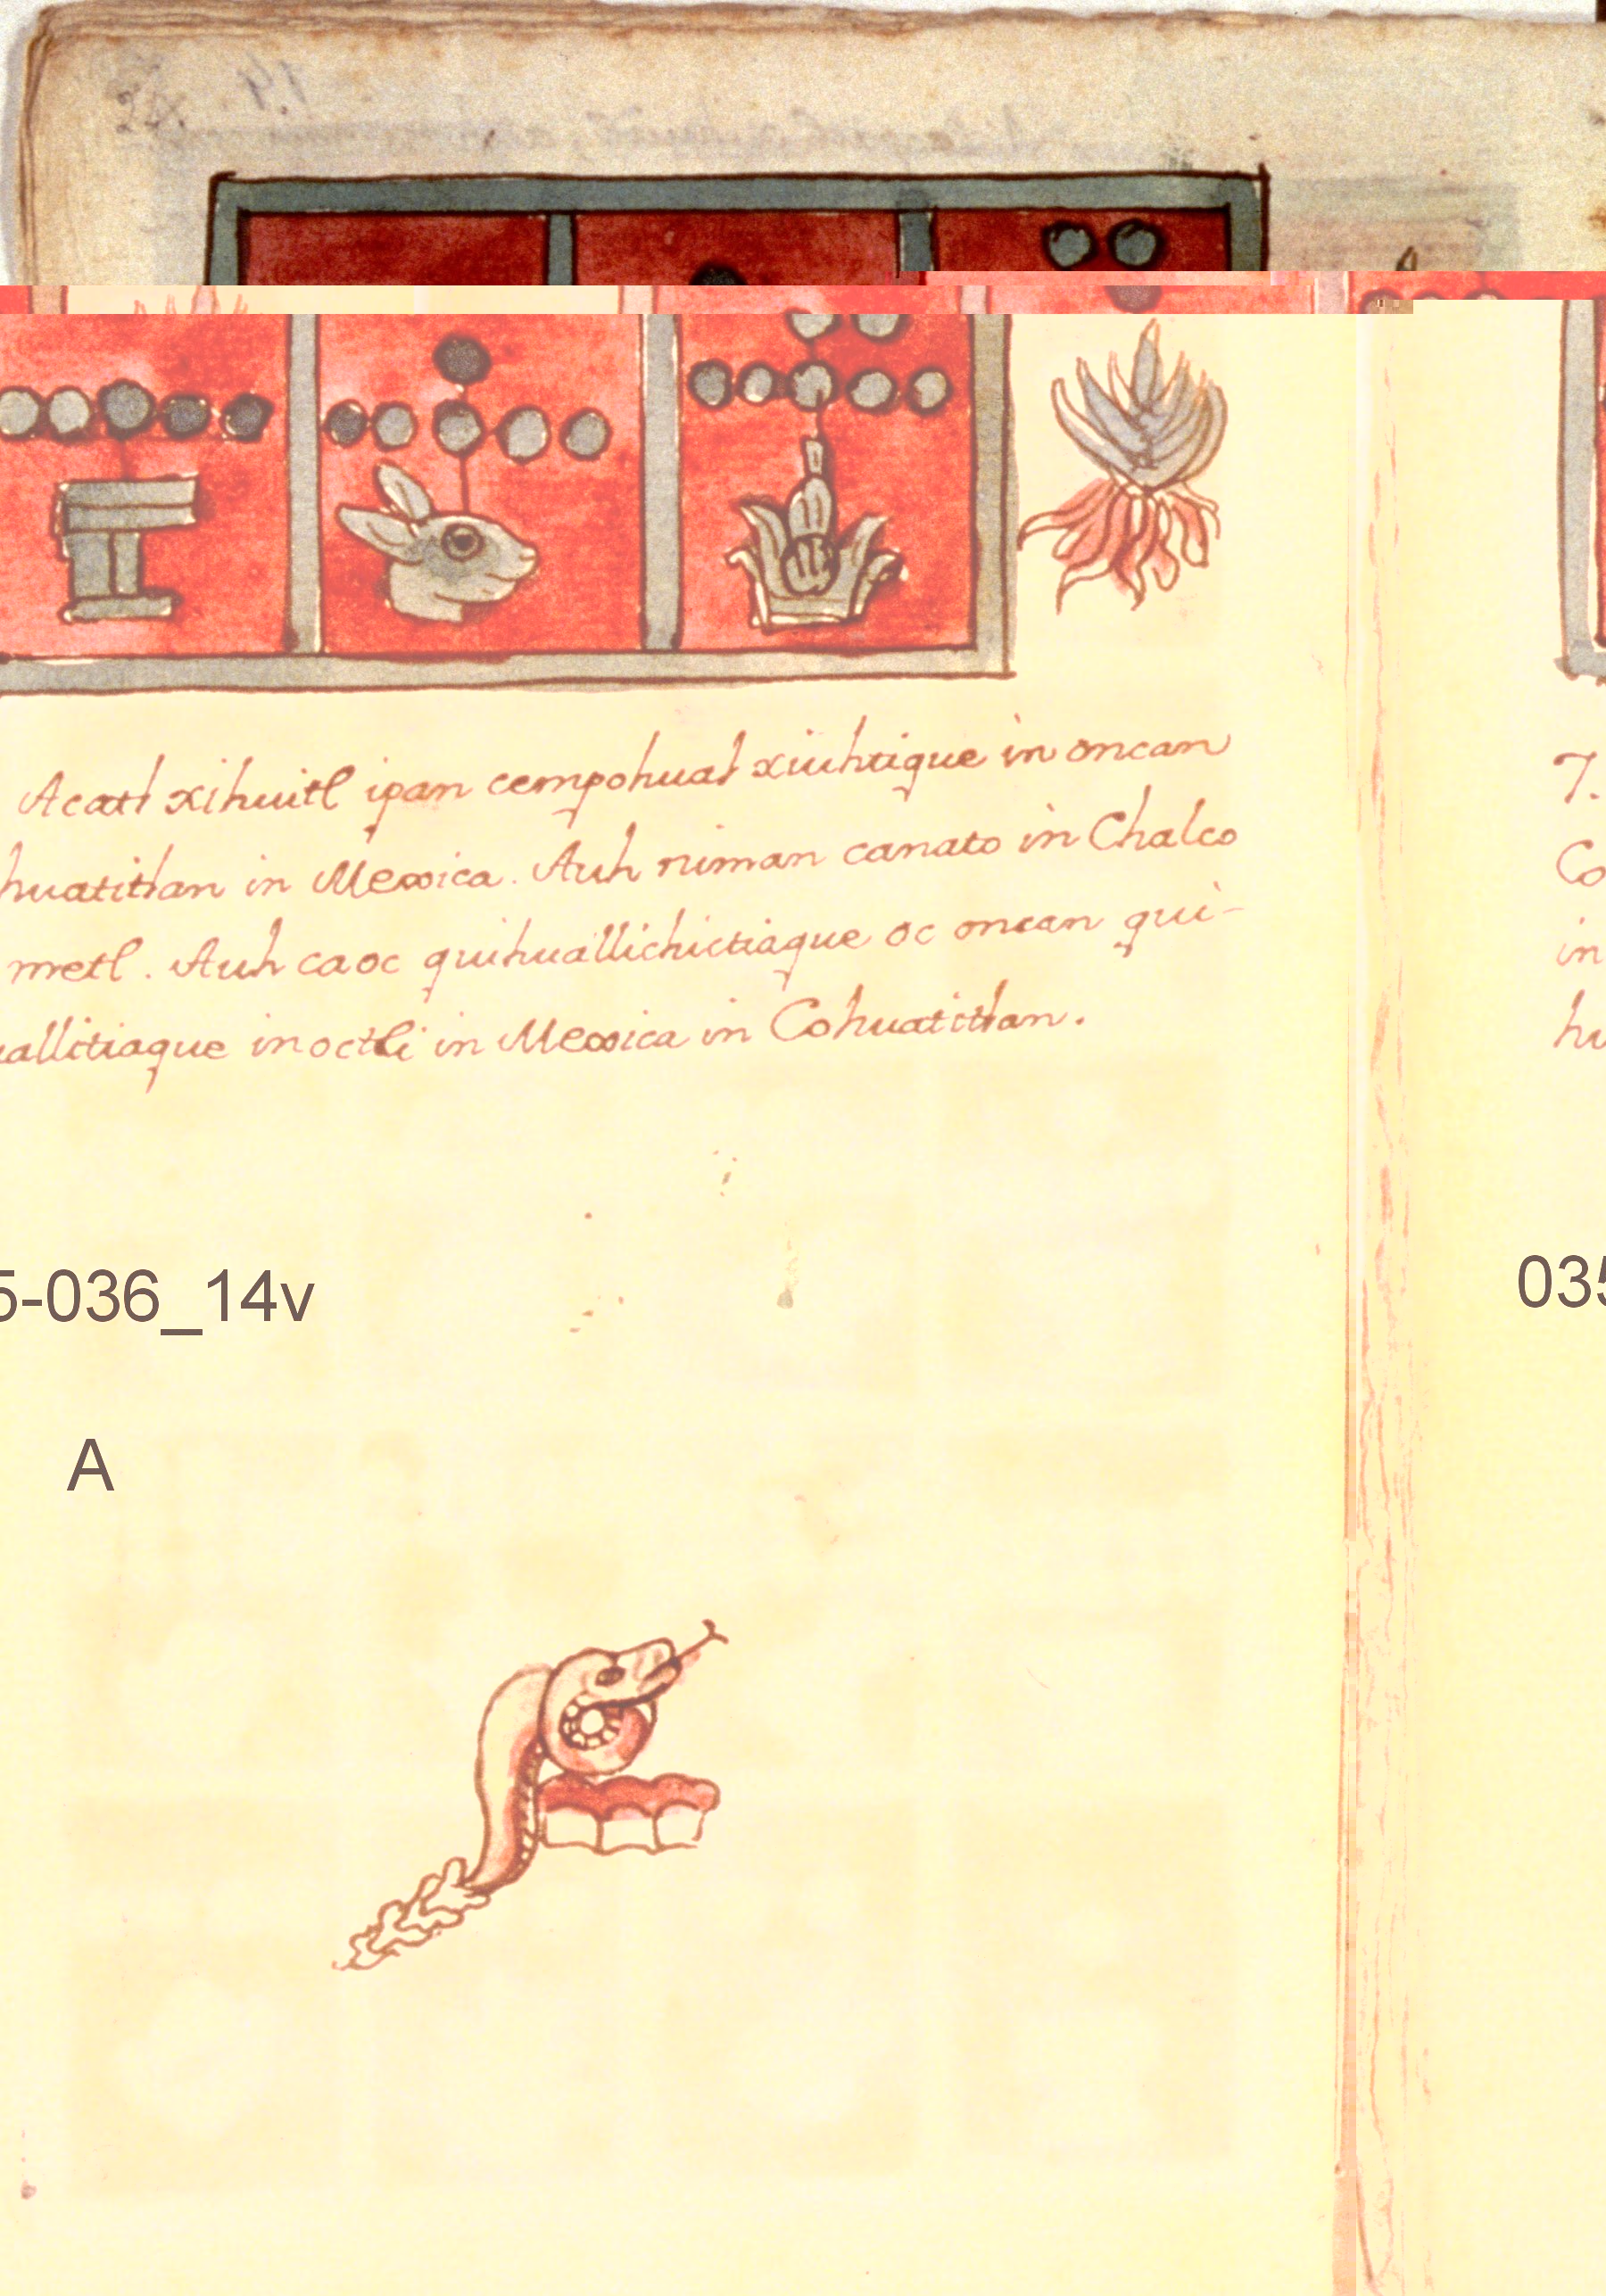 Acatl xihuitl ipan cempohual xiuhtique in oncan
huatitlan in Mexica. Auh niman canato in Chalco
metl. Auh caoc quihuallichictiaque oc oncan qui-
allitiaque in octli in Mexica in Cohuatitlan.
7.
Co
in
hu
5-036_14v
035
A